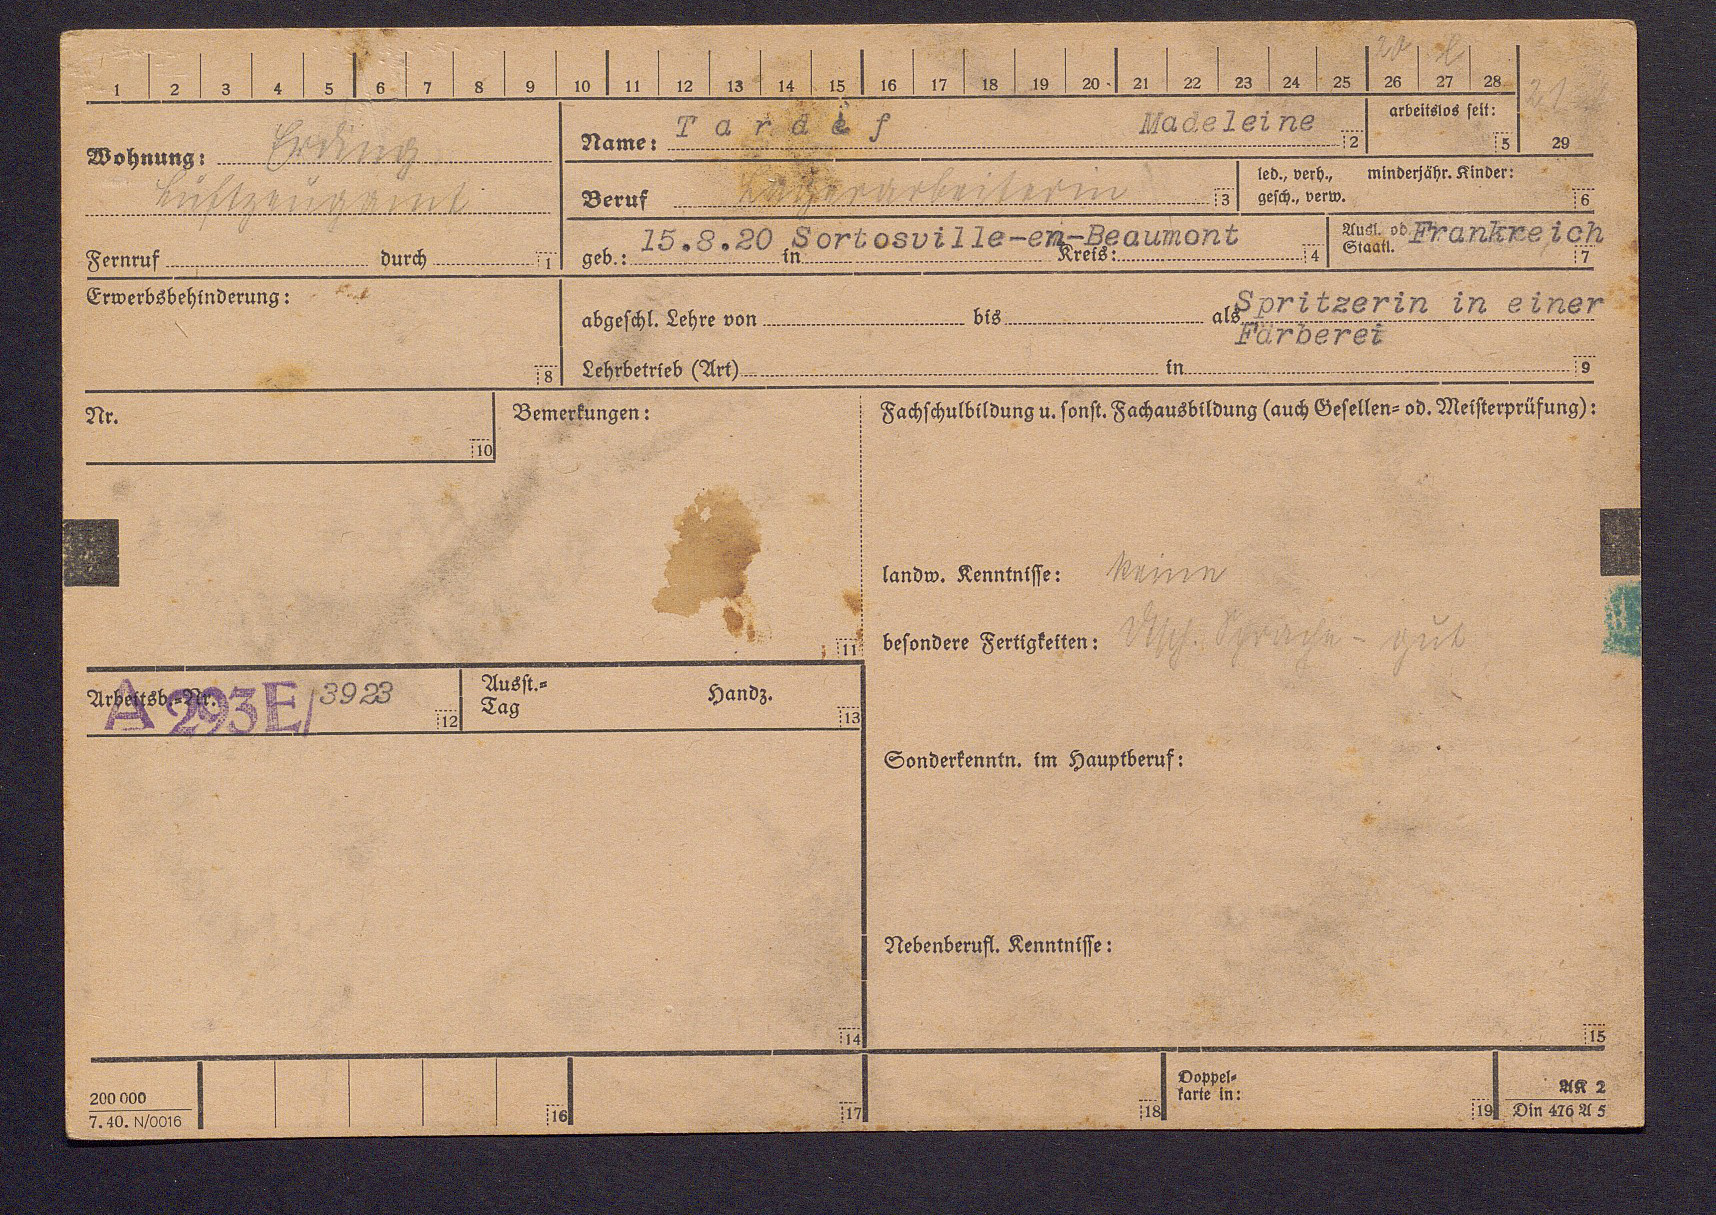 1 2 3 4 5 6 7 8 9 10 11 12 13 14 15 16 17 18 19 20 21 22 23 24 25 26 27 28
Wohnung: Erding
Luftzeugamt
Fernruf durch 1
Name: Tardif Madeleine 2
arbeitslos seit: 5
29
Beruf Lagerarbeiterin 3
led., verh., minderjähr. Kinder:
gesch., verw. 6
15.8.20 Sortosville-en-Beaumont
geb.: in Kreis: 4
Ausl. od. Frankreich
Staatl. 7
Erwerbsbehinderung:
8
abgeschl. Lehre von bis als Spritzerin in einer
Färberei
Lehrbetrieb (Art) in 9
Nr.
10
Bemerkungen:
11
Fachschulbildung u. sonst. Fachausbildung (auch Gesellen= od. Meisterprüfung):
landw. Kenntnisse: keine
besondere Fertigkeiten: Dtsch. Sprache - gut
Arbeitsb.=Nr. A 293E/3923 12
Ausst.=
Tag
Handz. 13
Sonderkenntn. im Hauptberuf:
Nebenberufl. Kenntnisse:
14
15
200 000
7. 40. N/0016
16
17
18
Doppel=
karte in:
19
AK 2
Din 476 A 5